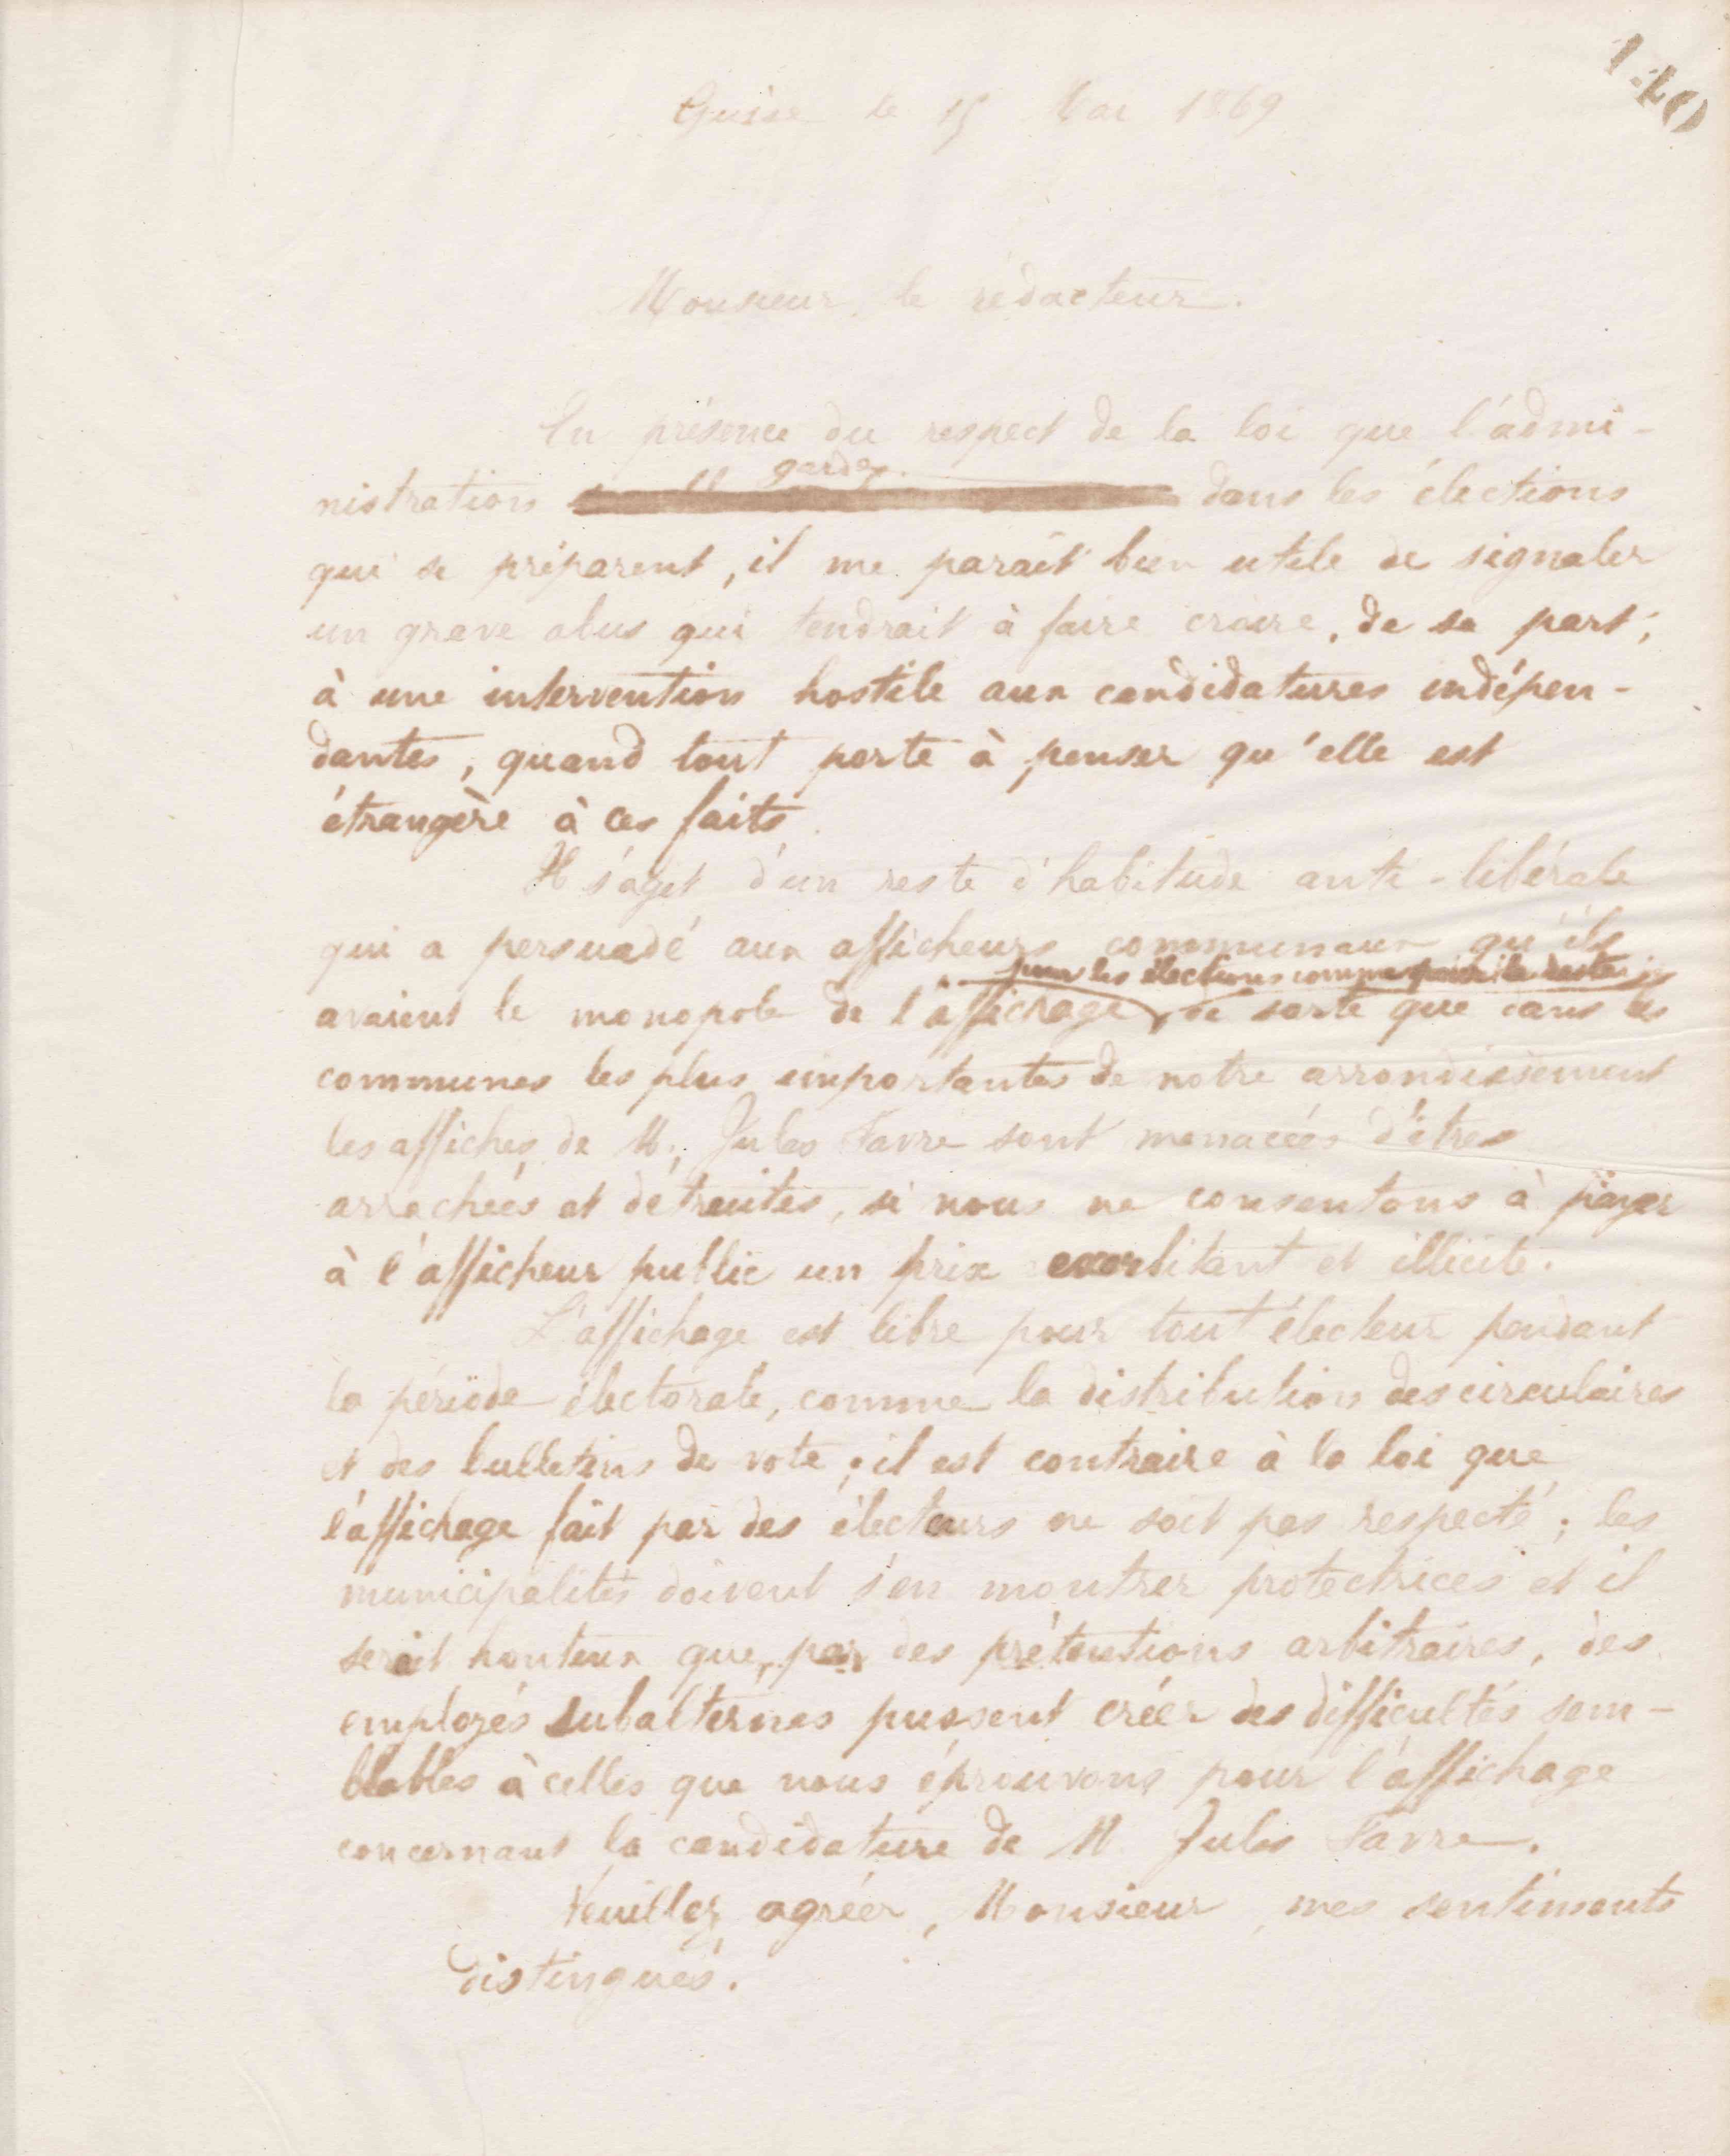 140
Guise le 15 Mai 1869
Monsieur le rédacteur.
En présence du respect de la loi que l'admi-
garde
nistration dans les élections
qui se préparent, il me paraît bien utile de signaler
un grave abus qui tendrait à faire croire, de sa part,
à une intervention hostile aux candidatures indépen-
dantes, quand tout porte à penser qu'elle est
étrangère à ces faits.
Il s'agit d'un reste d'habitude anti-libérale
qui a persuadé aux afficheurs communaux qu'ils
pour les élections comme pour le reste
avaient le monopole de l'affichage, de sorte que dans les
communes les plus importantes de notre arrondissement
les affiches de M. Jules Favre sont menacées d'êtres
arrachées et détruites, si nous ne consentons à payer
à l'afficheur public un prix exorbitant et illicite.
L'affichage est libre pour tout électeur pendant
la période électorale, comme la distribution des circulaires
et des bulletins de vote ; il est contraire à la loi que
l'affichage fait par des électeurs ne soit pas respecté ; les
municipalités doivent s'en montrer protectrices et il
serait honteux que, par des prétentions arbitraires, des
employés subalternes pussent créer des difficultés sem-
blables à celles que nous éprouvons pour l'affichage
concernant la candidature de M Jules Favre.
Veuillez agréer, Monsieur, mes sentiments
distingués.